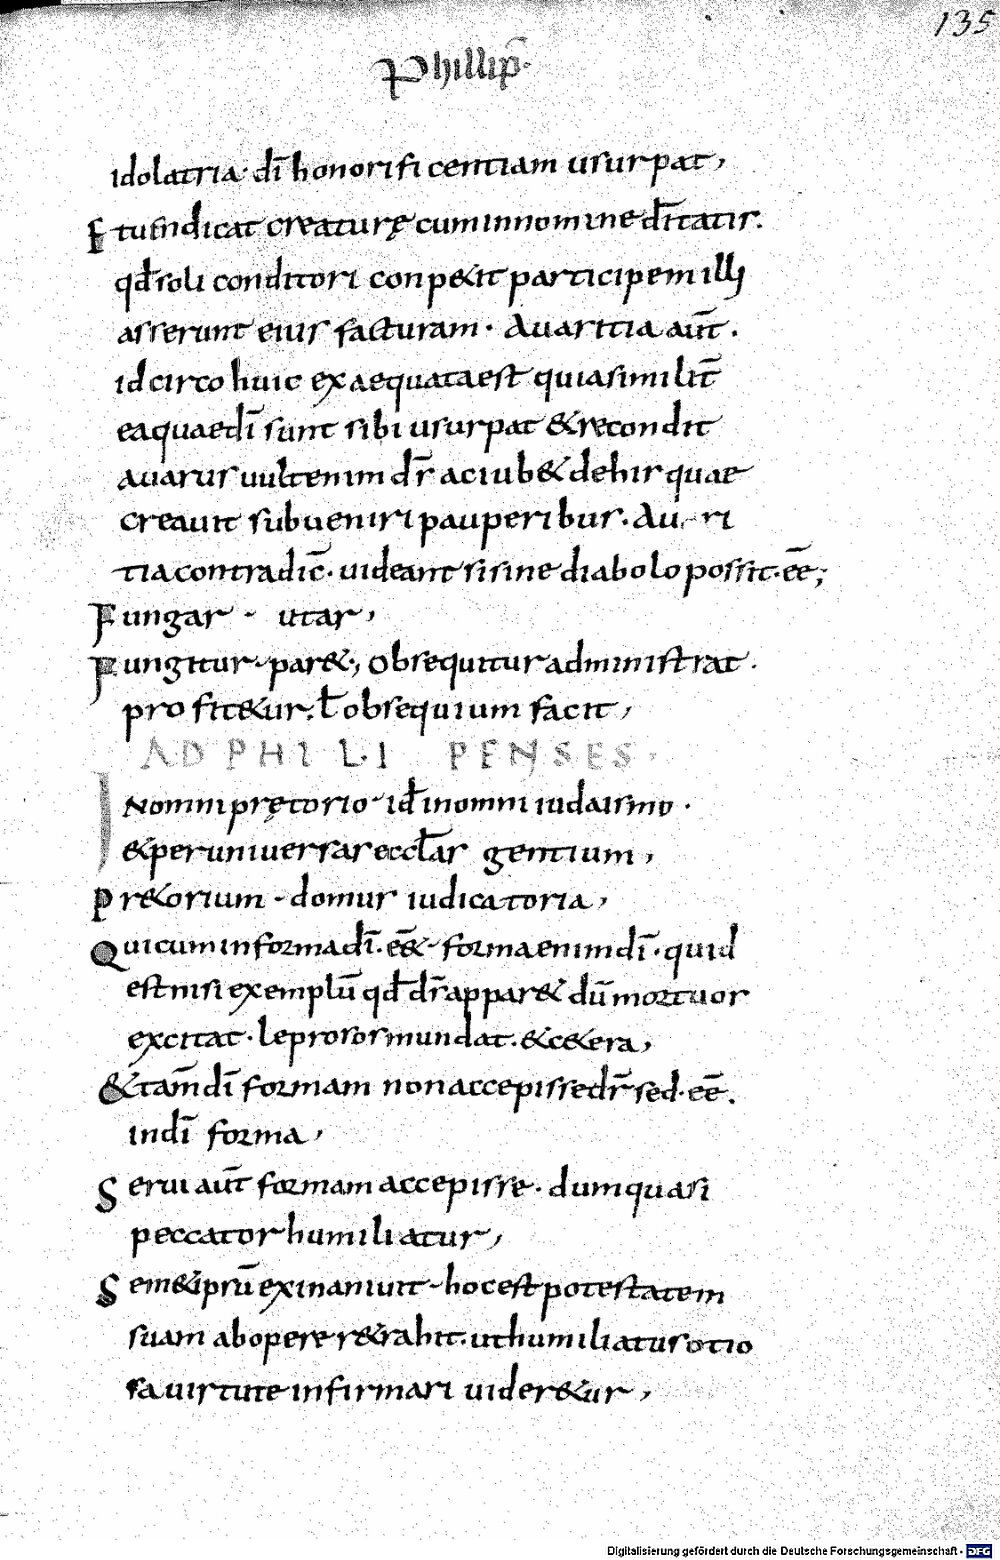 135
Phillip̄.
idolatria· dī honorificentiam usurpat,
Et uendicat creaturę cum innomine dītatis.
qđ soli conditori conpetit participem illi
asserunt eius facturam. Auaritia aūt.
idcirco huic exaequata est quia similit̄
ea quae dī sunt sibi usurpat & recondit
auarus uult enim dr̄ ac iub& de his quae
creauit subueniri pauperibus. Au ri
tia contradic̄. uideant si sine diabolo possit. ēē;
Fungar - utar,
Fungitur - par&; obsequitur administrat.
profit&ur. ł obsequium facit,
AD PHILIPENSES.
IN omni prętorio - iđ in omni iudaismo.
& per uniuersas eccłas gentium,
Pr&orium - domus iudicatoria,
Qui cum in forma dī. ēē& - forma enim dī. quid
est nisi exemplū qđ dr̄ appar& dū mortuos
excitat. leprosos mundat. & c&era,
&tam̄ dī formam non accepisse dr̄ sed. ēē.
in dī forma,
Serui aūt formam accepisse. dum quasi
peccator humiliatur,
Sem&ipsū exinaniuit - hoc est potestatem
suam ab opere r&rahit. ut humiliatus otio
sa uirtute infirmari uider&ur,
Digitalisierung gefördert durch die Deutsche Forschungsgemeinschaft - DFG